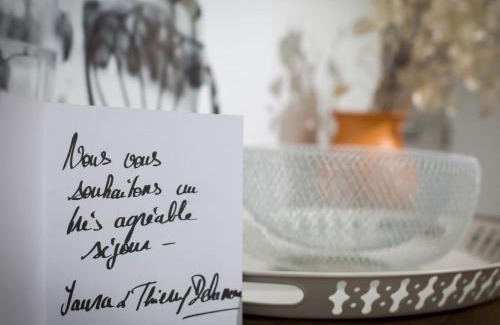 Nous vous
souhaitons un
très agréable
séjour —
& Thierry